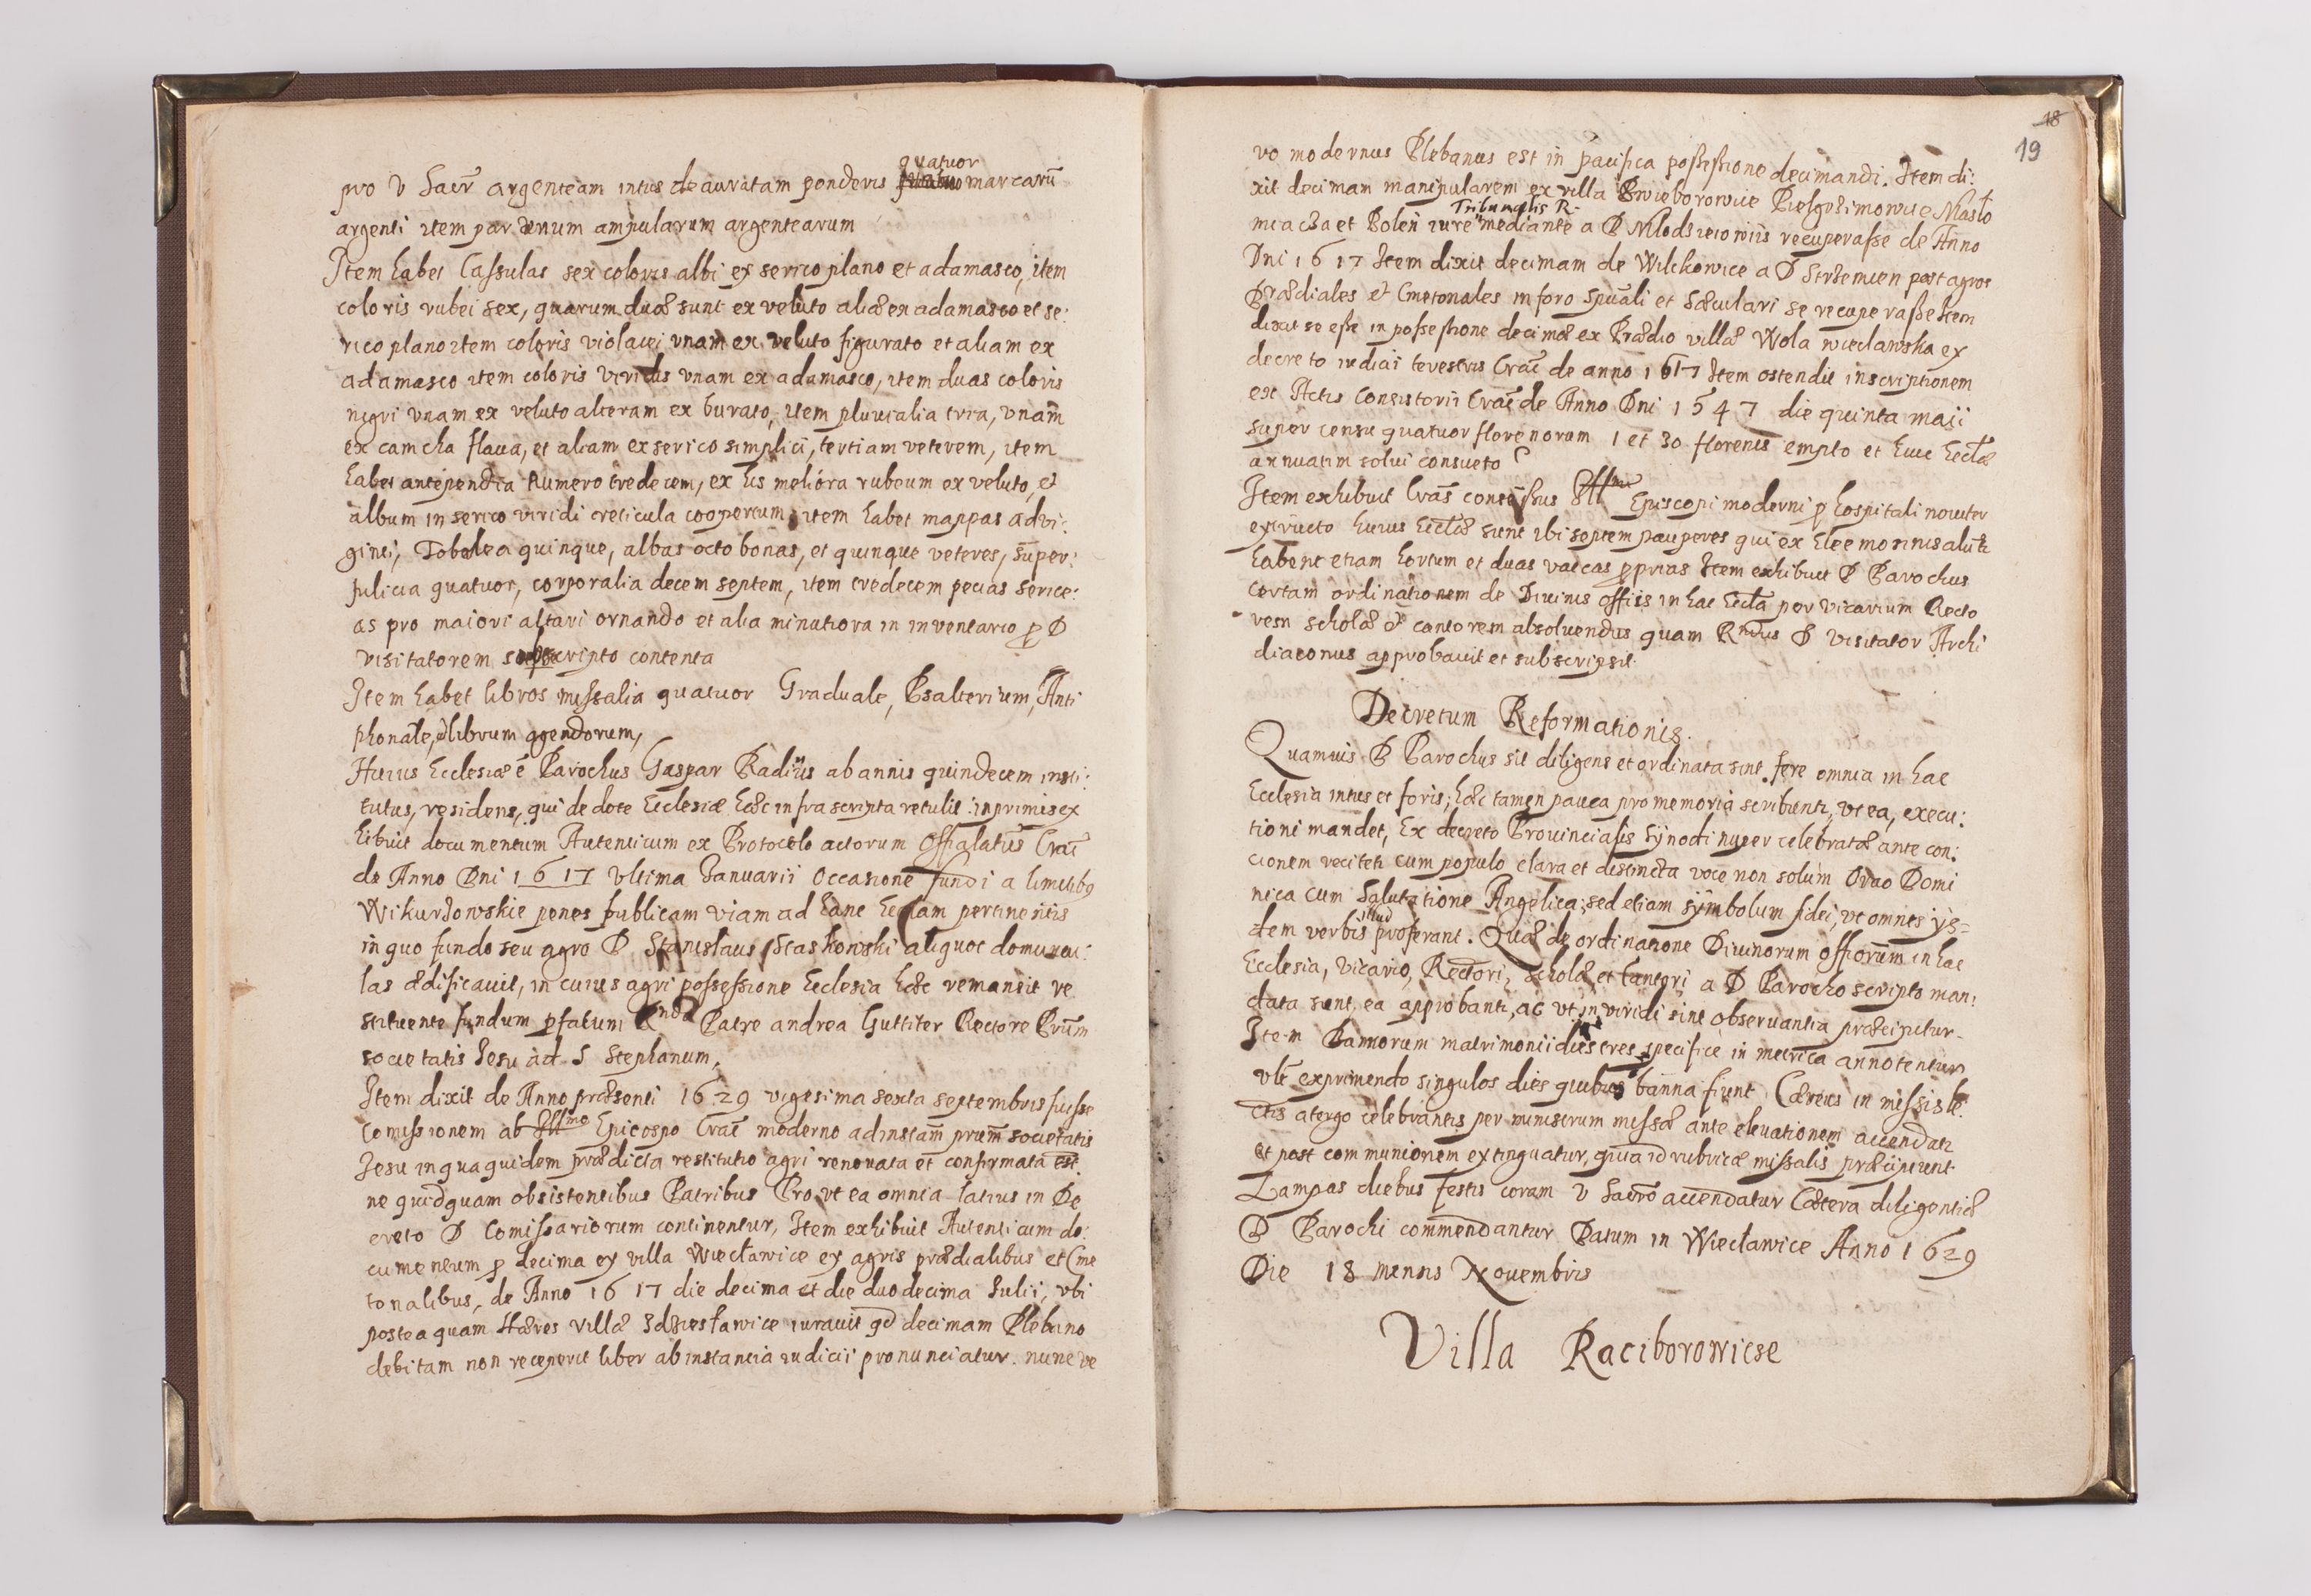 quatuor
pro V Sacr̃ argenteam intus deauratam ponderis marcarũ
argenti item par unum ampularum argentearum
Item habet Cassulas sex coloris albi ex serico plano et adamasco, item
coloris rubei sex, quarum duæ sunt ex veluto aliæ ex adamasco et se:
rico plano item coloris violacei vnam ex veluto figurato et aliam ex
adamasco item coloris viridis vnam ex adamasco, item duas coloris
nigri vnam ex veluto alteram ex burato, item pluuialia tria, vnam
ex camcha flaua, et aliam ex serico simplici, tertiam veterem, item
habet antipendia numero tredecem, ex his melióra rubeum ex veluto, et
album in serico viridi reticula coopertum, item habet mappas advi:
ginti, Tobalea quinque, albas octo bonas, et quinque veteres, super:
pilicia quatuor, corporalia decem septem, item tredecem pecias serice:
as pro maiori altari ornando et alia minutiora in inventario p D
visitatorem subscripto contenta
Item habet libros missalia quatuor Graduale, Psalterium, Anti
phonale, & librum agendorum,
Huius Ecclesiæ ẽ Parochus Gaspar Radiis ab annis quindecem insti:
tutus, residens, qui de dote Ecclesiæ hæc infra scripta retulit: inprimis ex
hibuit documentum Autenticum ex Protocolo actorum Offialatus Crac̃
de Anno Dni 1617 vltima Ianuarii occasione fundi a limitibꝰ
Wikurzowskie penes publicam viam ad hanc Ecclam pertinentis
in quo fundo seu agro D. Stanislaus Staskowski aliquot domuncu:
las ædificauit, in cuius agri possessione Ecclesia hæc remansit re
stituente fundum pfatum Rndo Patre andrea Guttiter Rectore Prũm
societatis Iesu ad S Stephanum,
Item dixit de Anno præsenti 1629 vigesima sexta septembris fuisse
Comissionem ab Illmo Epicospo Crac̃ moderno ad instam̃ prum̃ societatis
Iesu in qua quidem prædicta restitutio agri renouata et confirmata est.
ne quidquam obsistentibus Patribus Pro vt ea omnia latius in De
creto D Comissariorum continentur, Item exhibuit Autenticum do:
cumentum p decima ex villa Więcławice ex agris prædialibus et Cme
tonalibus, de Anno 1617 die decima et die duodecima Iulii, vbi
postea quam Hæres villæ Zdziesławice iurauit qd decimam Plebano
debitam non receperit liber ab instantia iudicii pronunciatur. nunc ve
18
19
vo modernus Plebanus est in pacifica possessione decimandi. Item di:
xit decimam manipularem ex villa
Tribunalis R.
mediante a D recuperasse de Anno
Dni 1617 Item dixit decimam de Wilchowice a D Strzemien post agros
Prædiales et Cmetonales in foro spũali et sæculari se recuperasse Item
dixit se esse in possessione decimæ ex Prædio villæ Wola więclawska ex
decreto iudicii terrestris Crac̃ de anno 1617 Item ostendit inscriptionem
ex Actis Consistorii Crac̃ de Anno Dni 1547 die quinta maii
super censu quatuor florenorum 1 et 30 florenis empto et huic Ecclæ
annuatim solui consueto
Item exhibuit Crac̃ consensus Illmi Episcopi moderni p hospitali nouiter
extructo huius Ecclæ sunt ibi septem pauperes qui ex Eleemosinis alunt̃
habent etiam hortum et duas vaccas pprias Item exhibuit D Parochus
certam ordinationem de Diuinis offiis in hac Eccla per vicarium Recto
rem scholæ & cantorem absoluendis quam Rndus D Visitator Archi
diaconus approbauit et subscripsit.
Decretum Reformationis.
Quamuis D Parochus sit diligens et ordinata sint fere omnia in hac
Ecclesia intus et foris, hæc tamen pauca pro memoria scribunt̃, vt ea, execu:
tioni mandet, Ex decreto Prouincialis Synodi nuper celebratæ ante con:
cionem recitet̃ cum populo clara et distincta voce non solùm Orao Domi
nica cum Salutatione Angelica, sed etiam symbolum fidei, vt omnes iys=
illud
dem verbis proferant. Quæ de ordinatione Diuinorum offiorum in hac
Ecclesia, vicario, Rectori, scholæ et Cantori a D Parocho scripto man:
data sunt ea approbant̃, ac vt in viridi sint obseruantia præcipitur.
Item Bannorum matrimonii dies tres specifice in metrica annotentur
vb̃ exprimendo singulos dies quibus banna fiunt Cæreus in missis le:
ctis a tergo celebrantis per ministrum missæ ante eleuationem accendat̃
et post communionem extinguatur, quia id rubricæ missalis præcipiunt
Lampas diebus festis coram V Sacrõ accendatur Cætera diligentiæ
D Parochi commendantur Datum in Więcławice Anno 1629
Die 18 mensis Nouembris
Villa Raciborowicse